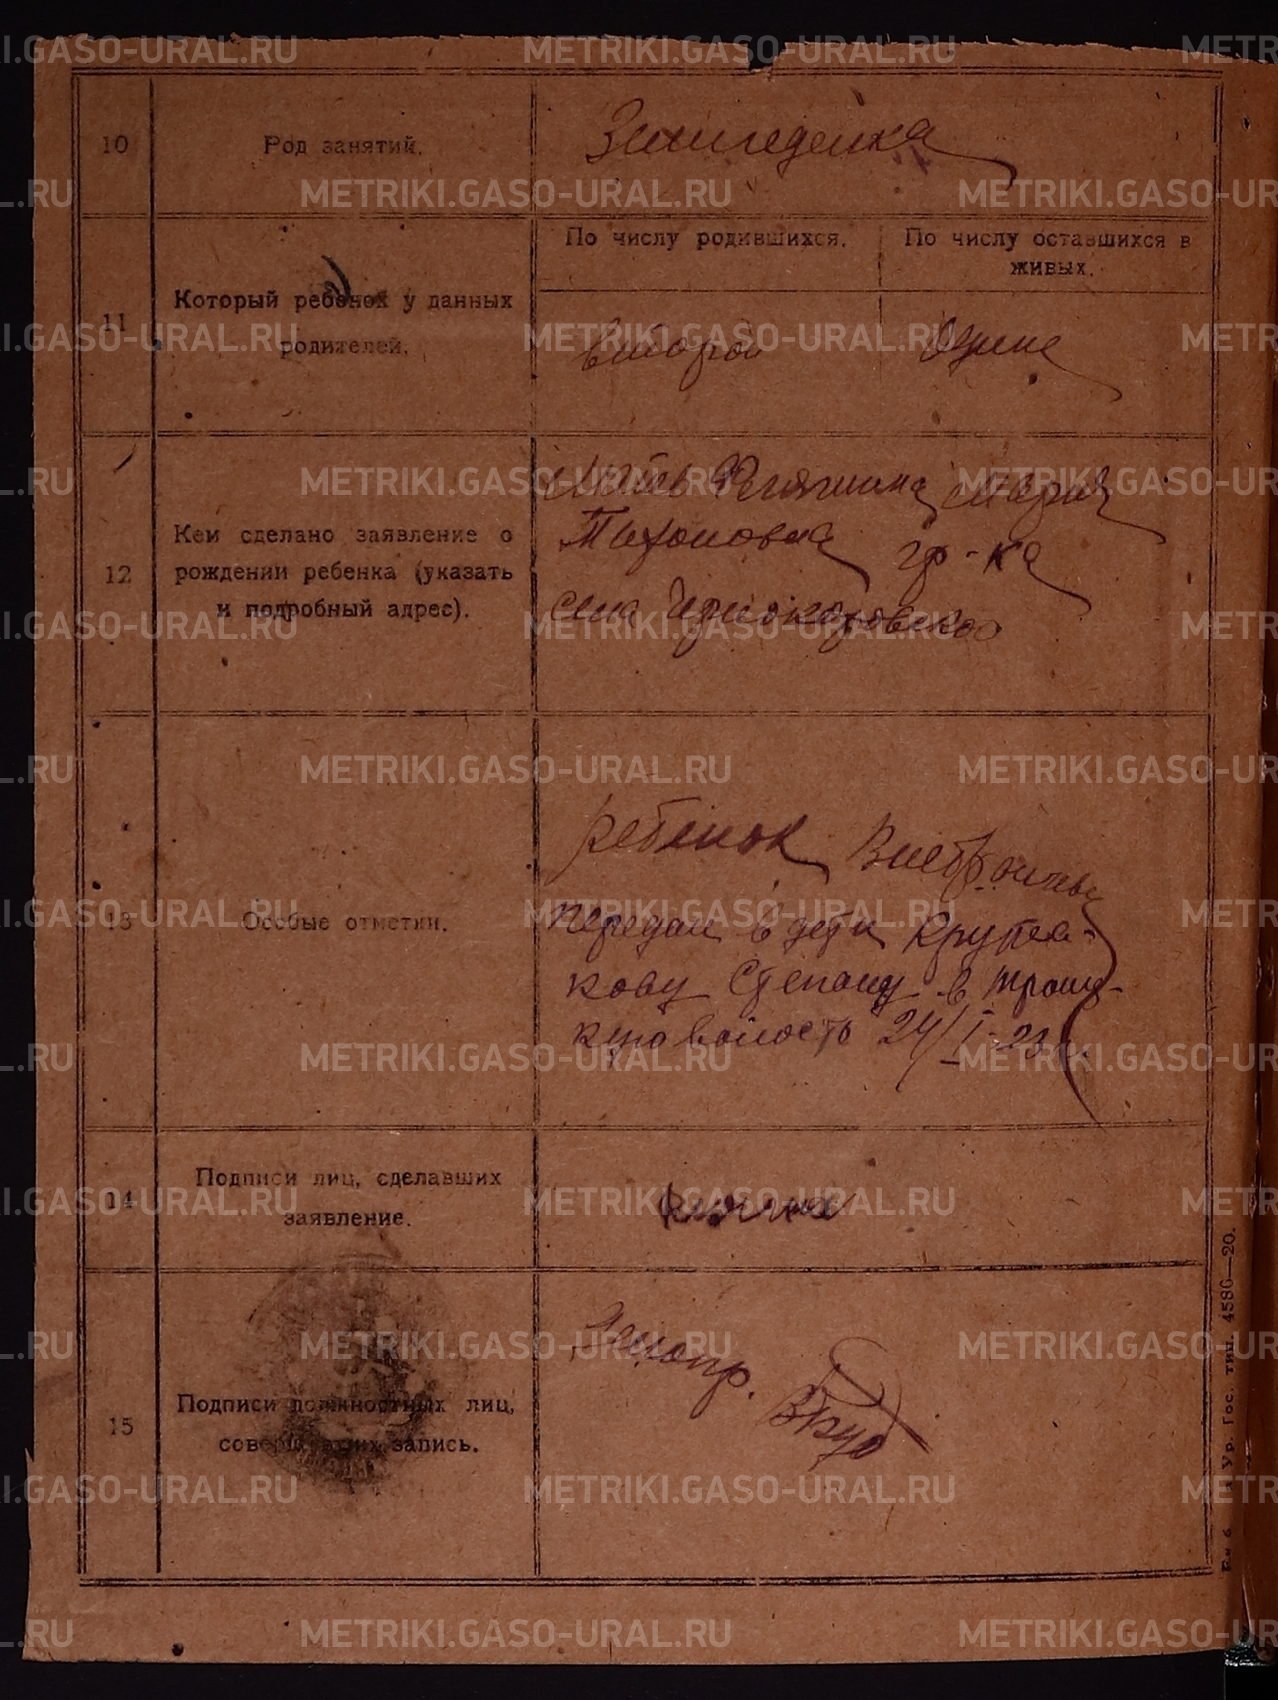 10 Род занятий. Земледелка
11 Который ребенок у данных родителей.
По числу родившихся. По числу оставшихся в живых.
второй Один
12 Кем сделано заявление о
рождении ребенка (указать
и подробный адрес).
Мать Мария
Тихоновна гр-ка
села Черноскоровского
13 Особые отметки.
ребенок
передан в дети Крутя-
кову Степану в
24/I-23 г.
14 Подписи лиц, сделавших
заявление.
15 Подписи должностных лиц,
совершивших запись.
Ур. Гос. тип. 4586—20.
METRIKI.GASO-URAL.RU